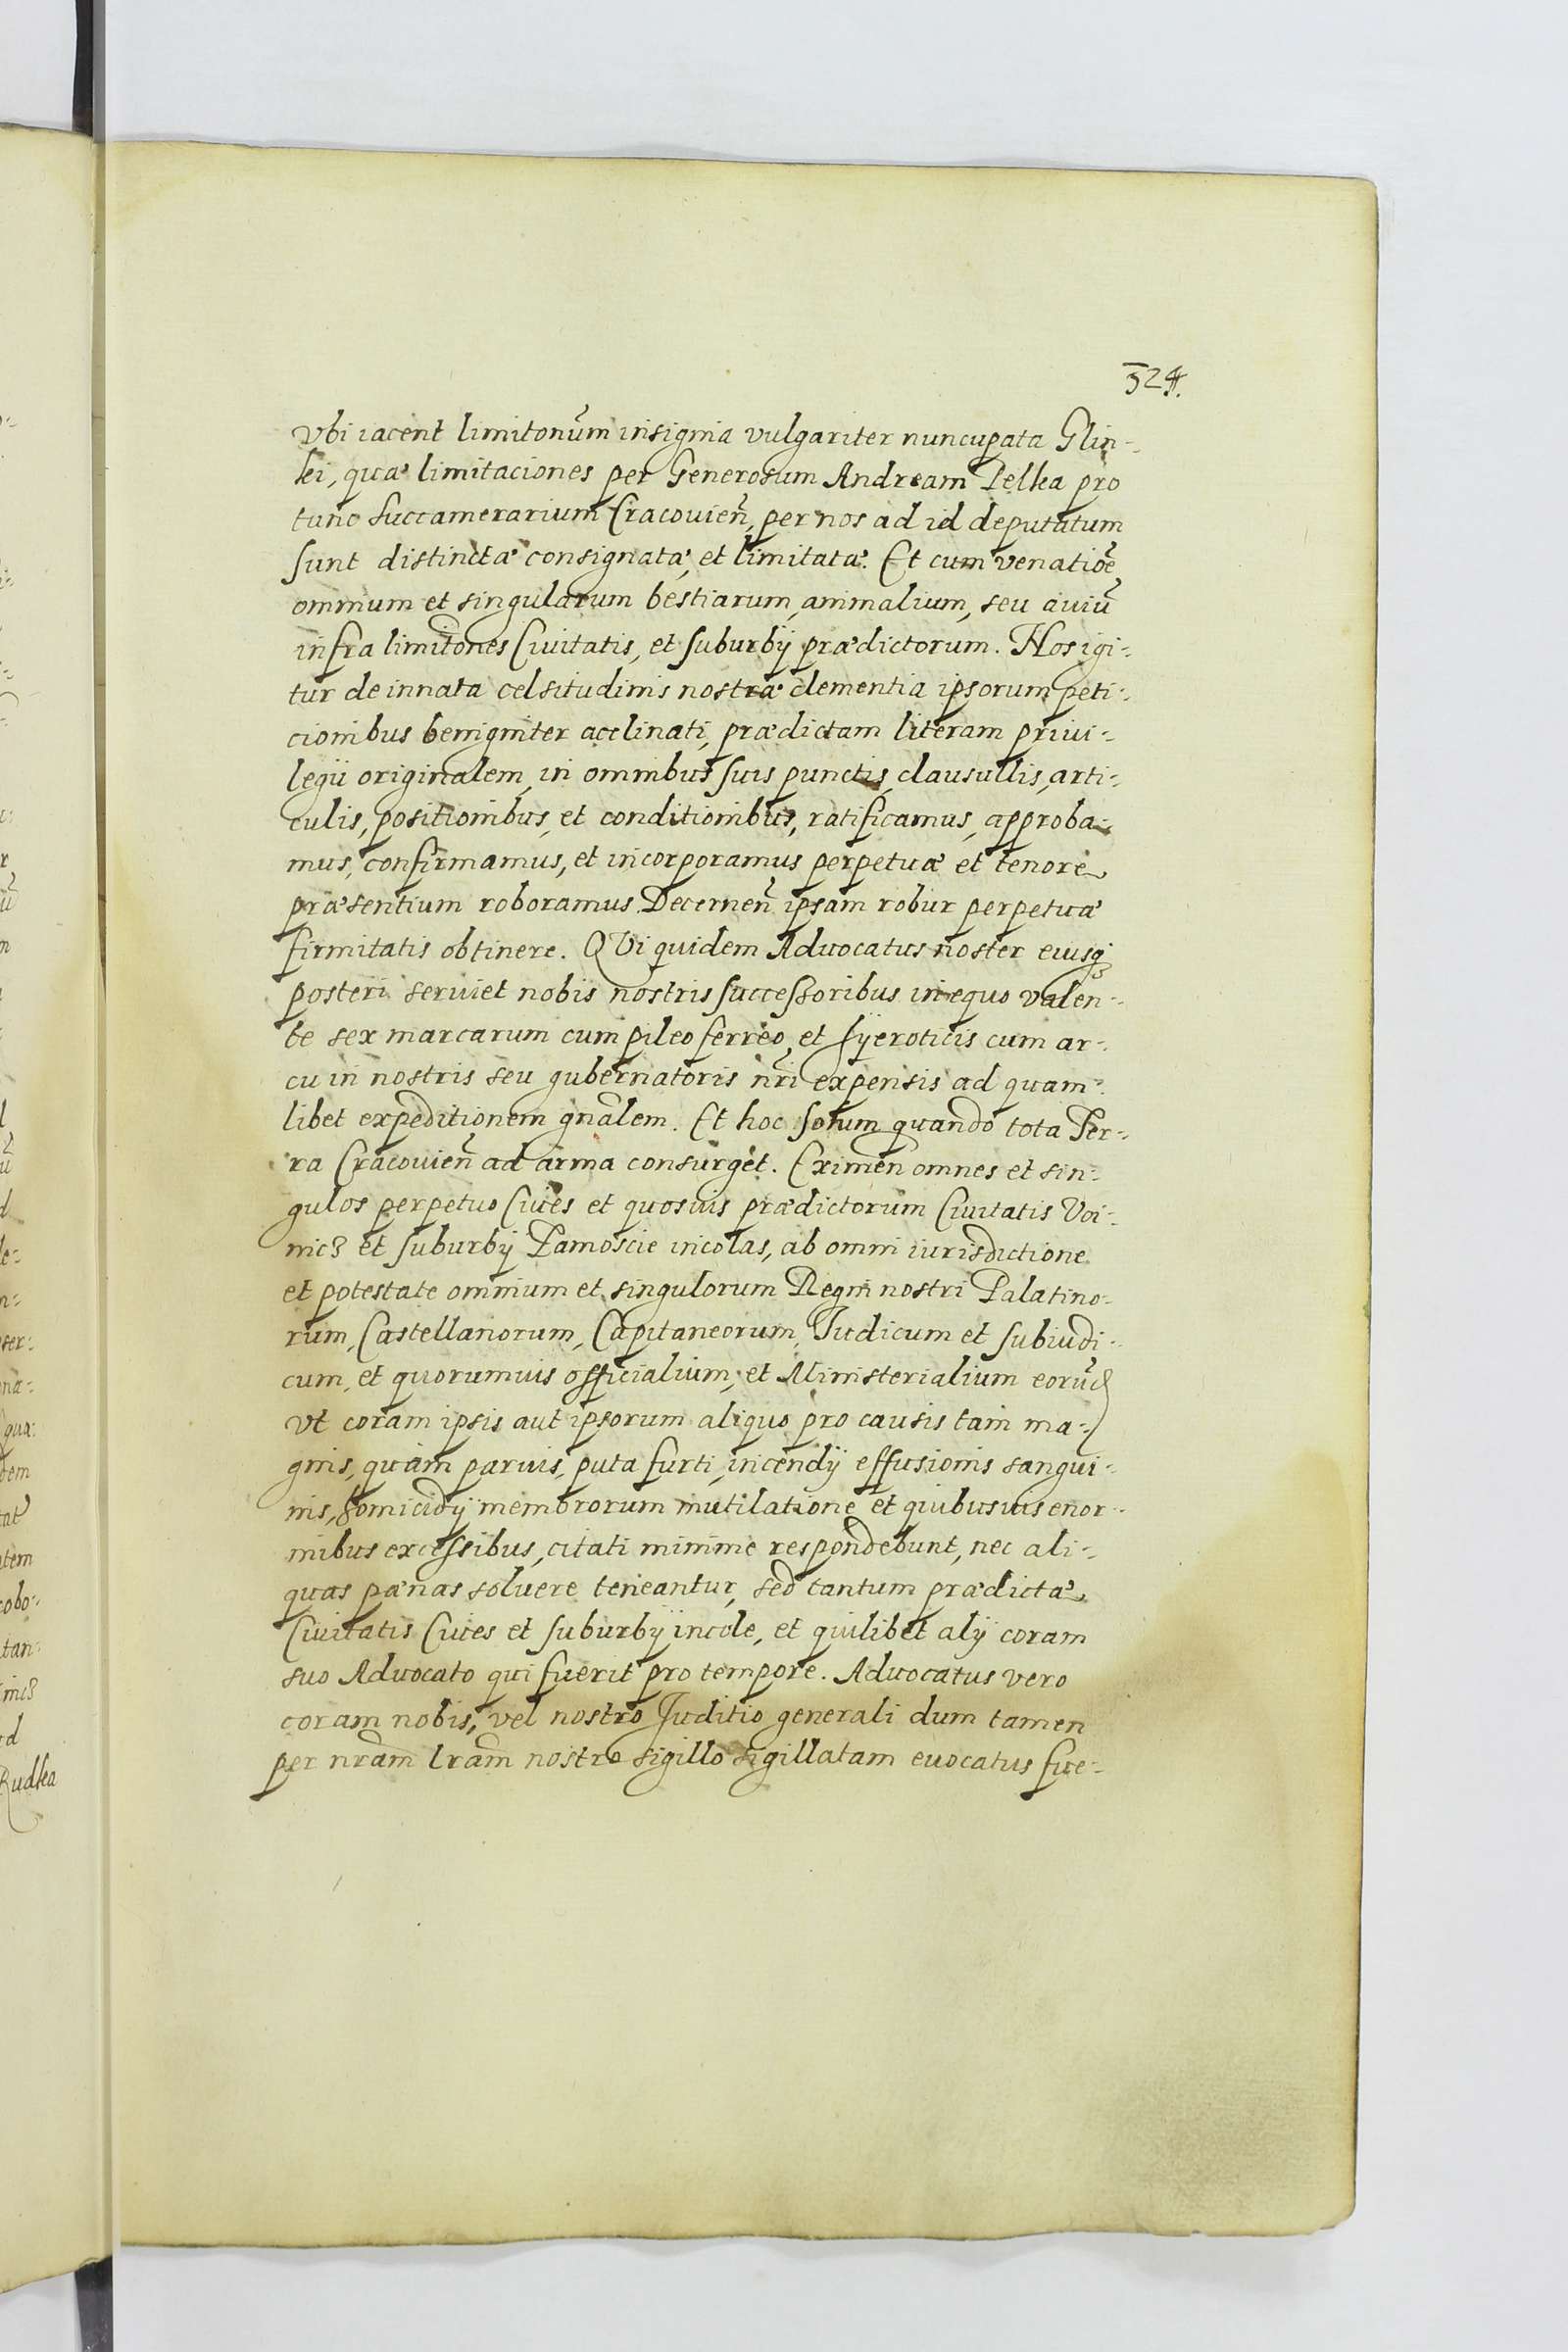 324.
Vbi iacent limitonum̃ insignia vulgariter nuncupata Glin-
ki, quæ limitaciones per Generosum Andream Pelka pro
tunc succamerarium Cracouien̄, per nos ad id deputatum
sunt distinctæ consignatæ, et limitatæ. Et cum venatiōe
omnium et singularum bestiarum, animalium, seu auiū
infra limitones Ciuitatis, et suburbÿ prædictorum. Nos igi-
tur de innata celsitudinis nostræ clementia ipsorum peti-
cionibus benigniter acclinati, prædictam literam priui-
legii originalem, in omnibus suis punctis, clausullis, arti-
culis, positionibus, et conditionibus, ratificamus, approba-
mus, confirmamus, et incorporamus perpetuæ et tenore
præsentium roboramus. Decernen̄ ipsam robur perpetuæ
firmitatis obtinere. QVi quidem Aduocatus noster eiusq3
posteri seruiet nobis nostris successoribus in equo valen-
te sex marcarum cum pileo ferreo, et sÿeroticis cum ar-
cu in nostris seu gubernatoris nr̄i expensis ad quam-
libet expeditionem gnālem. Et hoc solum quando tota Ter-
ra Cracouien̄ ad arma consurget. Eximen̄ omnes et sin-
gulos perpetuo Ciues et quosuis prædictorum Ciuitatis Voi-
nicz et suburbÿ Zamoscie incolas, ab omni iurisdictione
et potestate omnium et singulorum Regni nostri Palatino-
rum, Castellanorum, Capitaneorum, Iudicum et subiudi-
cum, et quorumuis officialium, et Ministerialium eorūd
vt coram ipsis aut ipsorum aliquo pro causis tam ma-
gnis, quam paruis, puta furti, incendÿ effusionis sangui-
nis, homicidÿ membrorum mutilatione et quibusuis enor-
mibus excessibus, citati minime respondebunt, nec ali-
quas pænas soluere teneantur, sed tantum prædictæ
Ciuitatis Ciues et suburbÿ incole, et quilibet alÿ coram
suo Aduocato qui fuerit pro tempore. Aduocatus vero
coram nobis, vel nostro Juditio generali dum tamen
per nr̄am lr̄am nostro sigillo sigillatam euocatus fue-